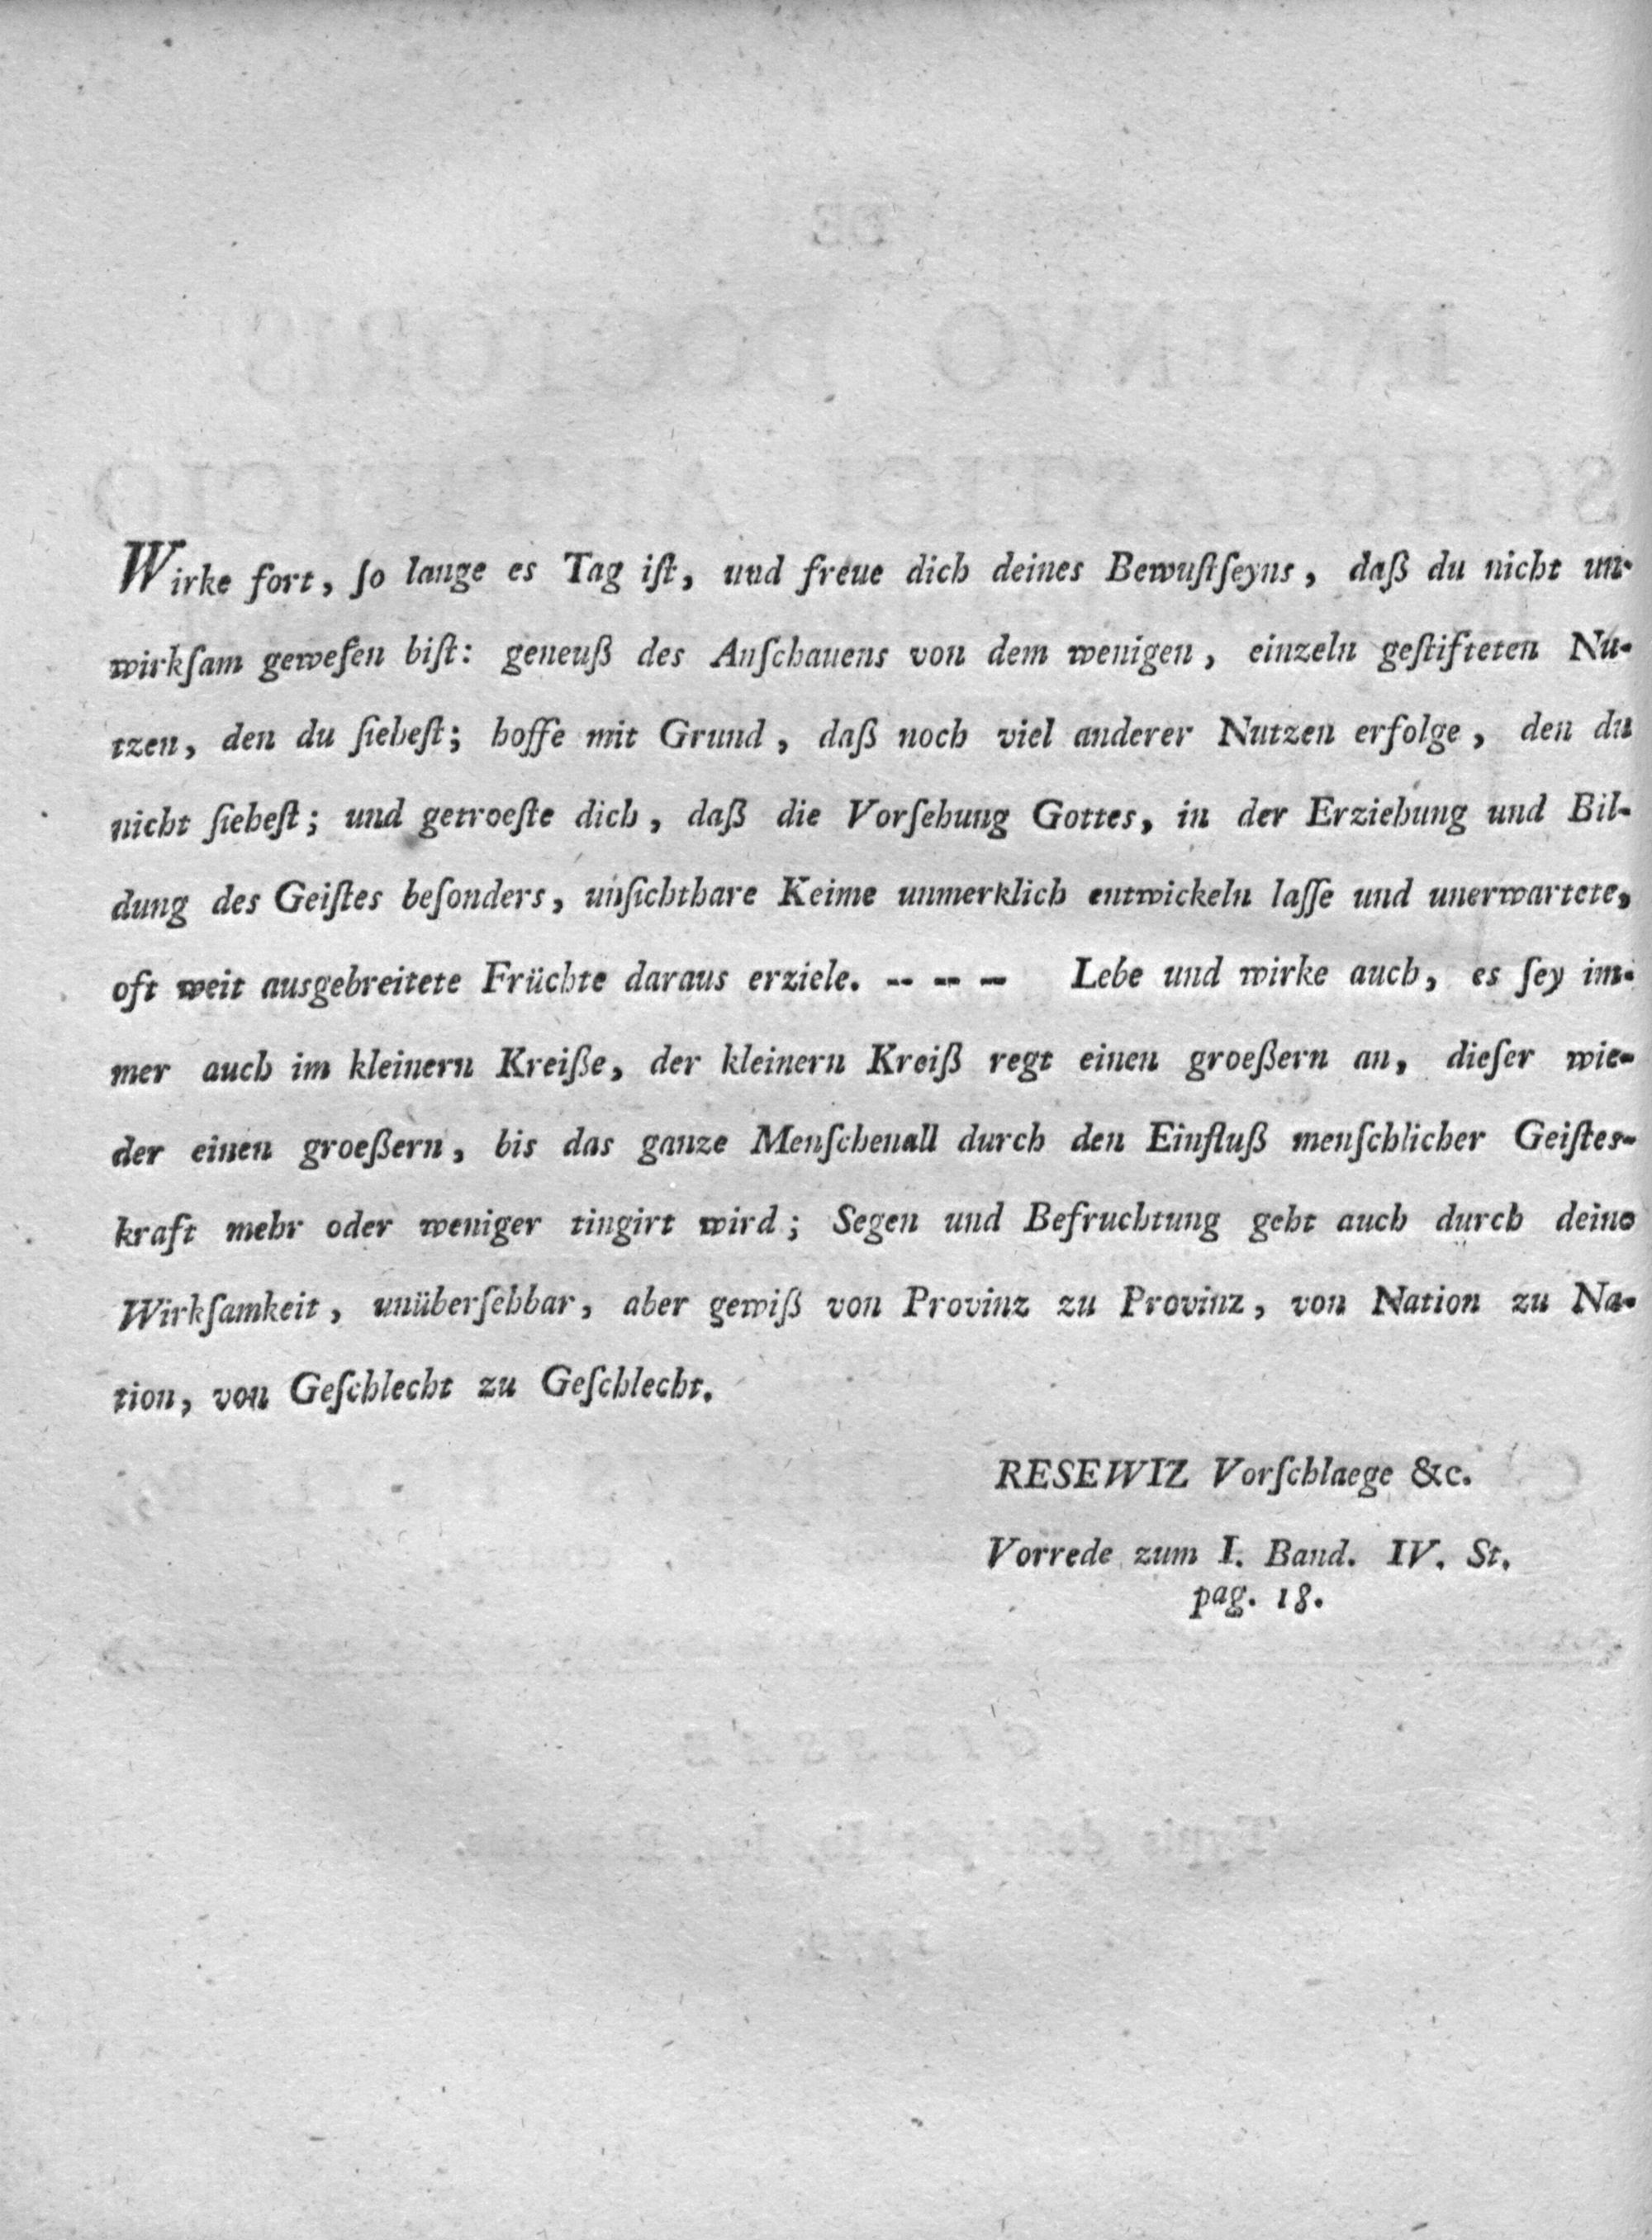 Wirke fort, ſo lange es Tag iſt, und freue dich deines Bewuſtſeyns, daß du nicht un-
wirkſam geweſen biſt: geneuß des Anſchauens von dem wenigen, einzeln geſtifteten Nu-
tzen, den du ſieheſt; hoffe mit Grund, daß noch viel anderer Nutzen erfolge, den du
nicht ſieheſt; und getroeſte dich, daß die Vorſehung Gottes, in der Erziehung und Bil-
dung des Geiſtes beſonders, unſichtbare Keime unmerklich entwickeln laſſe und unerwartete,
oft weit ausgebreitete Früchte daraus erziele. -- -- -- Lebe und wirke auch, es ſey im-
mer auch im kleinern Kreiße, der kleinern Kreiß regt einen groeßern an, dieſer wie-
der einen groeßern, bis das ganze Menſchenall durch den Einfluß menſchlicher Geiſtes-
kraft mehr oder weniger tingirt wird; Segen und Befruchtung geht auch durch deine
Wirkſamkeit, unüberſehbar, aber gewiß von Provinz zu Provinz, von Nation zu Na-
tion, von Geſchlecht zu Geſchlecht.
RESEWIZ Vorſchlaege &c.
Vorrede zum I. Band. IV. St.
pag. 18.